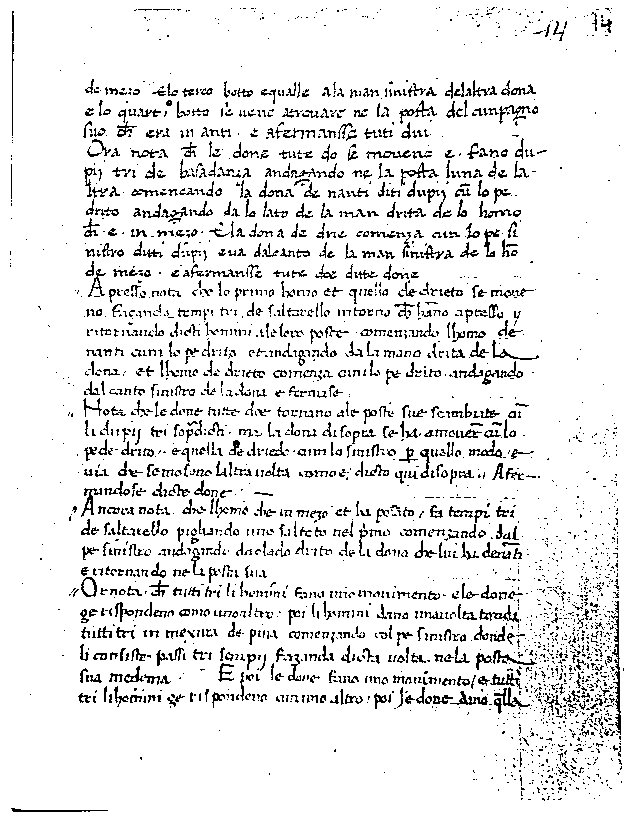 14 14
de mezo · E lo terço botto equalle ala man sinistra delaltra dona
e lo quarto botto se vene atrovare ne la posta del cunpagno
suo ch̄ era in anti · e afermansse tuti dui
Ora nota ch̄ le done tute do se movene e · fano du-
pij tri de basadanza andagando ne la posta luna de la-
ltra comencando la dona de nanti diti dupij cū lo pe
drito andagando da lo lato de la man drita de lo homo
ch̄ · e · in mezo · E la dona de drie comenza cun lo pe si
nistro ditti dupij e va dal canto de la man sinistra de lo hō
de mezo · e afermansse tute doe ditte done
Apresso nota che lo primo homo et quello de drieto se move
no façando tempi tri de saltarello intorno ch̄ hano apresso y
ritornando dicti homini ale loro poste comenzando lhomo de
nanti cum lo pe drito et andagando da la mano drita de la
dona · et lhomo de drieto comenza cun lo pe drito andagando
dal canto sinistro de la dona e fermase
Nota che le done tutte doe tornano ale poste sue scambiate cū
li dupij tri sopradicti · ma la dona disopra se ha amover cū lo
pede drito · e quella de driedo cum lo sinistro p quello modo e
via che se mosono laltra volta como e dicto qui disopra · Afer-
mandose dicte done
Ancora nota che lhomo che in mezo et ha posato fa tempi tri
de saltarello pigliando uno salteto nel pimo comenzando dal
pe sinistro andagando da elado drito de la dona che lui ha denāti
e ritornando ne la posta sua
Or nota ch̄ tutti tri li homini fano uno movimento · e le done
ge rispondeno como uno altro · poi li homini dano una volta tonda
tutti tri in mexura de piva comenzando col pe sinistro donde
li consiste passi tri scempij fazando dicta volta ne la posta
sua medema E poi le done fano uno movimento e tutti
tri li homini ge rispondeno cun uno altro · poi le done dano qlla